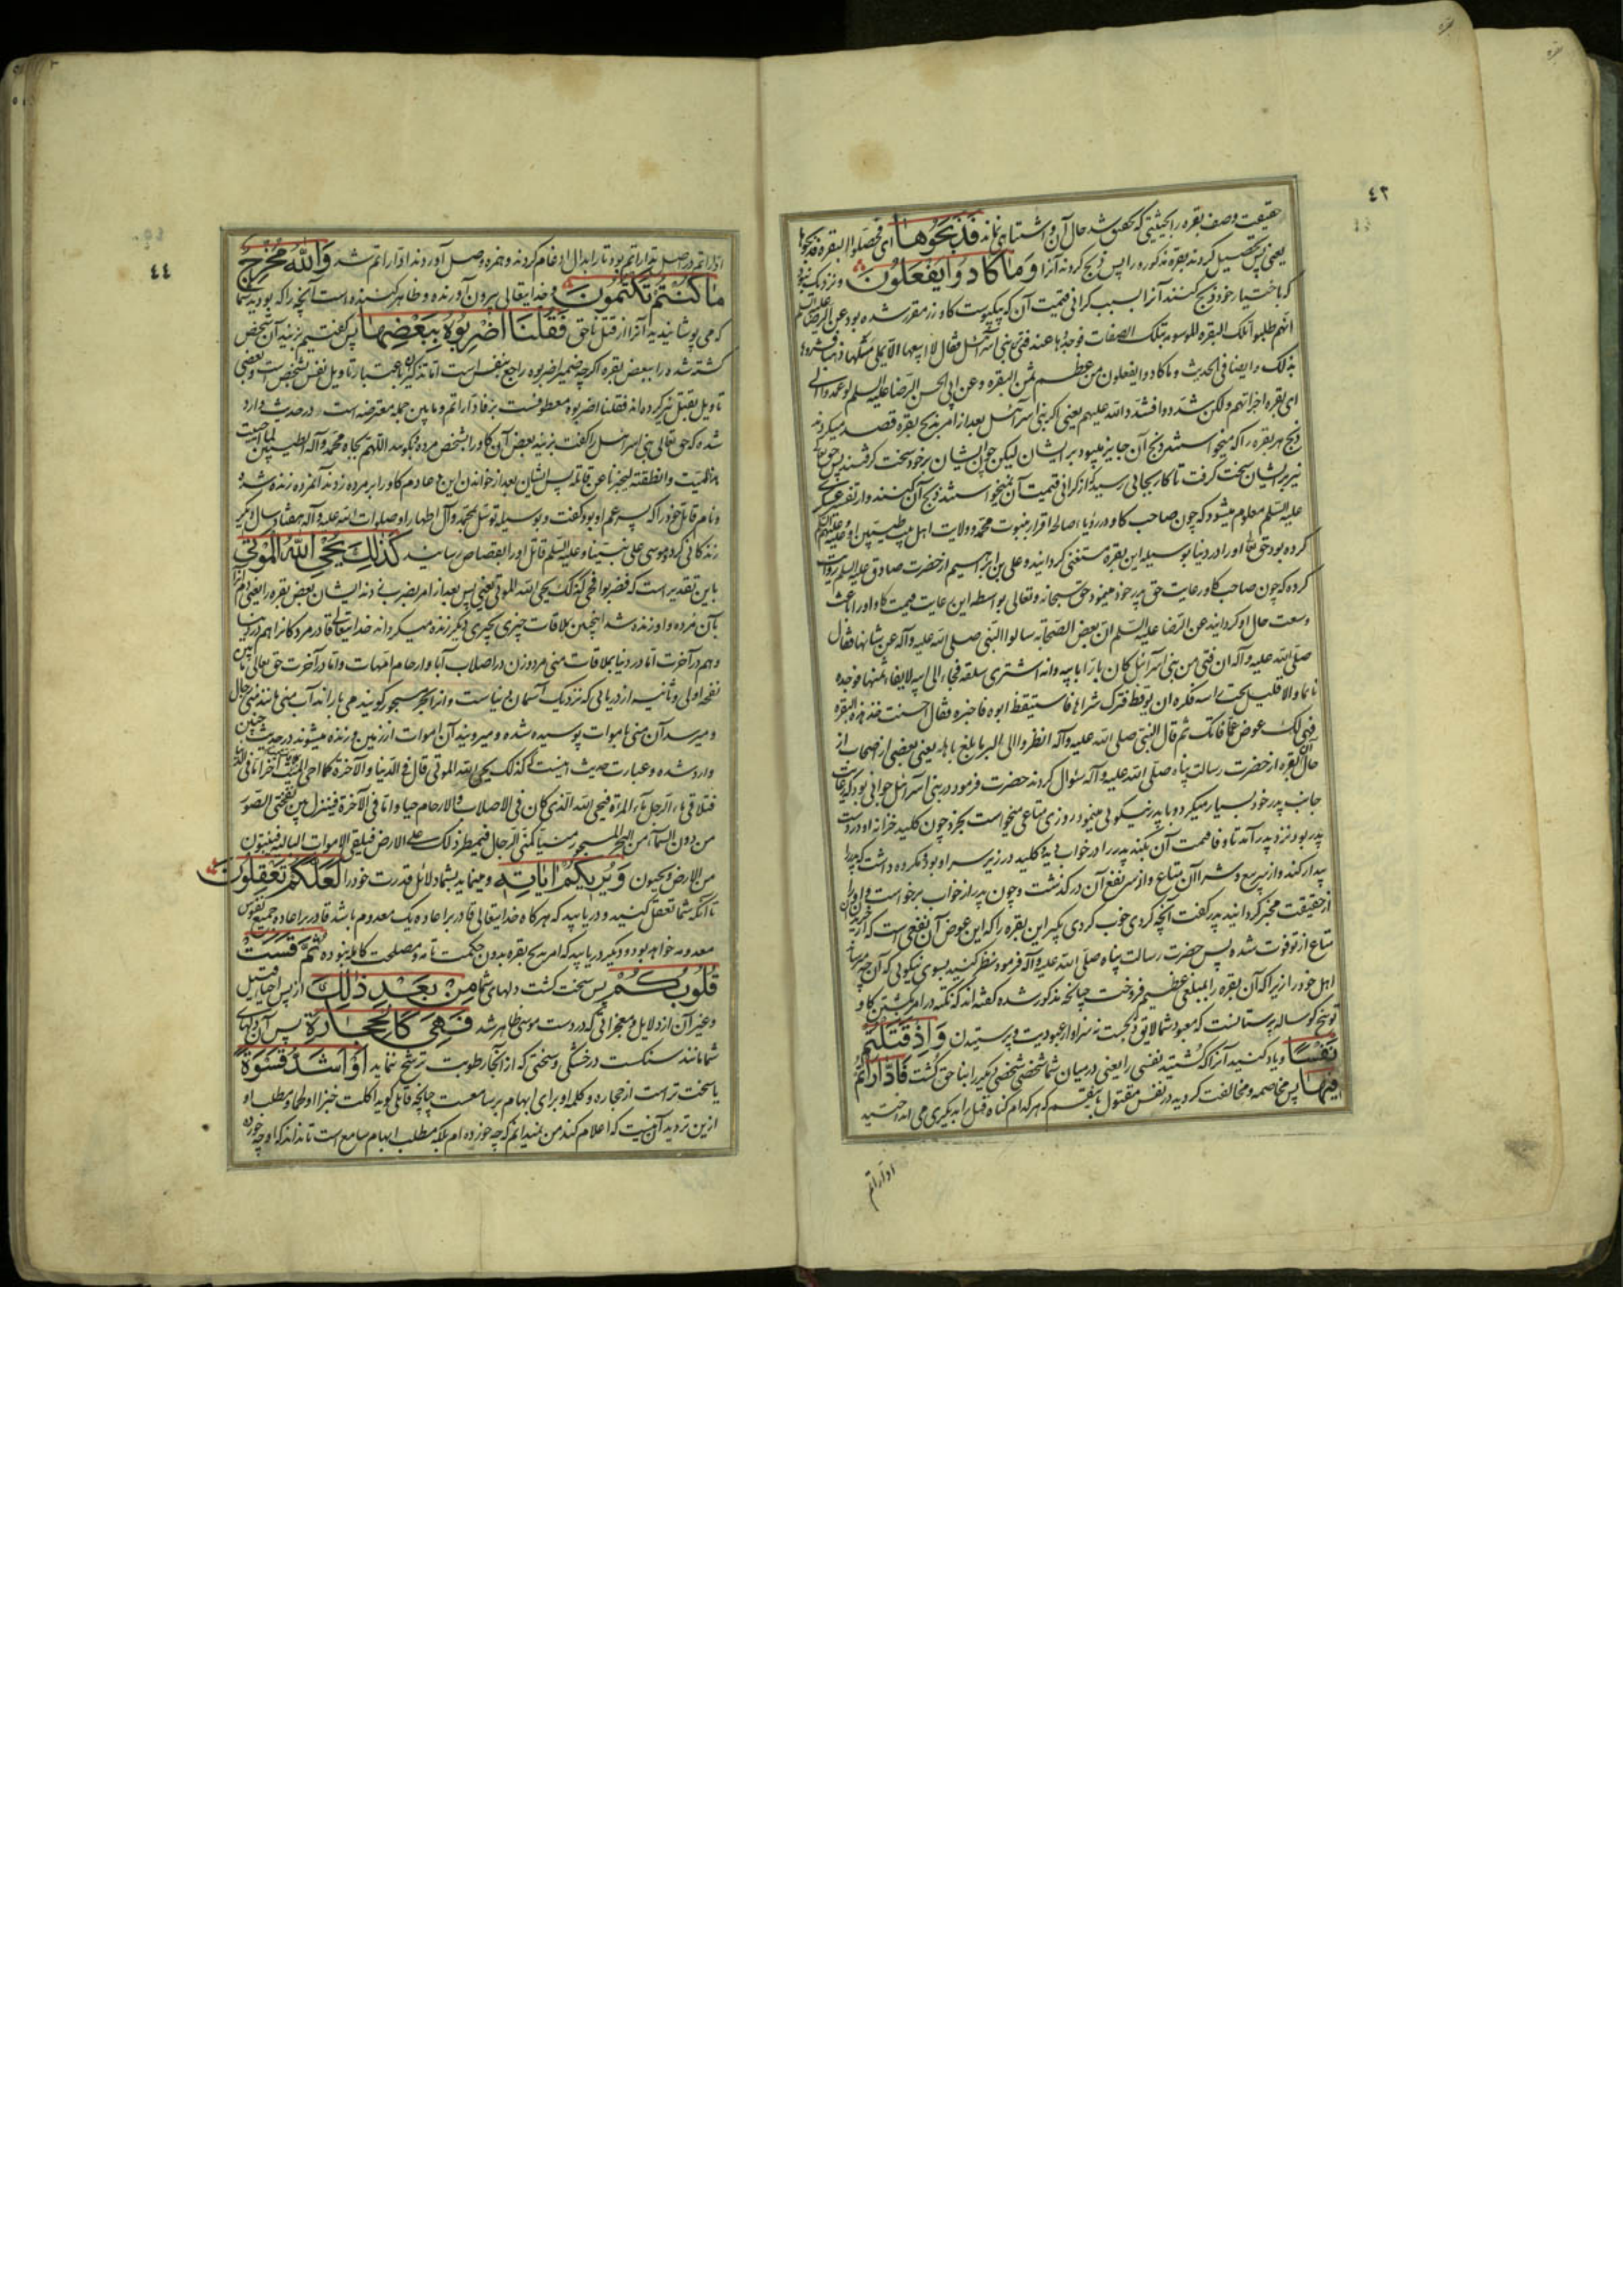 ٤٣
حقیقت وصف بقره را بحیثیتی که محقق شد حال آن و اشتباهی نماند فَذَبَحُوهَا ای فحصلوا البقرة فذبحوها
یعنی پس تحصیل کردند بقره مذکوره را پس ذبح کردند آنرا وَمَا كَادُوا يَفْعَلُونَ و نزدیک نبود
که باختیار خود ذبح کنند آنرا بسبب گرانی قیمت آن که پوست گاو زر مقرر شده بود عن الرضا علیه السلم
انهم طلبوا تلک البقره فوجدوها عند فتی من بنی اسرائیل فقال لا ابیعها الا بملئ مسکها ذهبا
ذلک وایضا فی الحدیث و ما کادوا یفعلون من عظم ثمن البقره و عن ابی الحسن الرضا علیه السلم لو عمدوا الی
ای بقره اجزأتهم ولکن شددوا فشدد الله علیهم یعنی اگر بنی اسرائیل بعد از امر بذبح بقره قصد میکردند
ذبح هر بقره را که میخواستند ذبح آن جایز میبود بر ایشان لیکن چون ایشان بر خود سخت گرفتند پس حق تعالی
نیز بر ایشان سخت گرفت تا کار بجایی رسید که از گرانی قیمت آن نمیخواستند ذبح آن کنند و از تفسیر عسکری
علیه السلم معلوم میشود که چون صاحب گاو در رؤیاء صالحه اقرار بنبوت محمد و ولایت اهل بیت طیبین او علیه و علیهم السلم
کرده بود حق تعالی او را در دنیا بوسیله این بقره مستغنی گردانید و علی بن ابراهیم از حضرت صادق علیه السلم روایت
کرده که چون صاحب گاو رعایت حق پدر خود مینمود حق سبحانه و تعالی بواسطه این رعایت قیمت گاو او را باعث
وسعت حال او گردانید عن الرضا علیه السلم ان بعض الصحابة سالوا النبی صلی الله علیه وآله عن شانها فقال
صلی الله علیه وآله ان فتی من بنی اسرائیل کان بارا بابیه وانه اشتری سلعة فجاء الی ابیه لایفاء ثمنها فوجده
نائما والاقلید تحت راسه فکره ان یوقظه فترک شراءها فاستیقظ ابوه فاخبره فقال احسنت خذ هذه البقره
فهی لک عوض عما فاتک ثم قال النبی صلی الله علیه وآله انظروا الی البر ما بلغ باهله یعنی بعضی از صحابه از
حال آن بقره از حضرت رسالت پناه صلی الله علیه وآله سئوال کردند حضرت فرمود در بنی اسرائیل جوانی بود که رعایت
جانب پدر خود بسیار میکرد و با پدر نیکویی مینمود روزی متاعی میخواست بخرد چون کلید خزانه او در دست
پدر بود نزد پدر آمد تا وفا قیمت آن بکند پدر را در خواب دید کلید در زیر سر او بود مکروه داشت که پدر را
بیدار کند و از سر بیع و شراء آن متاع و از سر نفع آن درگذشت و چون پدر از خواب برخواست و او را
از حقیقت مخبر گردانید پدر گفت آنچه کردی خوب کردی بگیر این بقره را که این عوض آن نفعی است که از خریدن آن
متاع از تو فوت شده پس حضرت رسالت پناه صلی الله علیه وآله فرمود نظر کنید بسوی نیکویی که آن چه میرساند
اهل خود را زیرا که آن بقره را بمبلغی عظیم فروخت چنانچه مذکور شده گفته اند که نکته در امر بکشتن گاو
توبیخ گوساله پرستانست که معبود شما لایق ذبحست نه سزاوار عبودیت و پرستیدن وَاِذْ قَتَلْتُمْ
نَفْسًا و یاد کنید آنرا که کشتید نفسی را یعنی در میان شما شخصی شخصی دیگر را بنا حق کشت فَادّٰارَأْتُمْ
فِيهَا پس مخاصمه و مخالفت کردید در نفس مقتول باینقسم که هر کدام گناه قتل را بدیگری می انداختید
ادارأتم
٤٤
ادارأتم در اصل تدارأتم بود تا را بدال ادغام کردند و همزه وصل آوردند ادارأتم شد وَاللّٰهُ مُخْرِجٌ
مَا كُنْتُمْ تَكْتُمُونَ و خدایتعالی بیرون آورنده و ظاهر کننده است آنچه را که بودید شما
که می پوشانیدید آنرا از قتل ناحق فَقُلْنَا اضْرِبُوهُ بِبَعْضِهَا پس گفتیم بزنید آن شخص
کشته شده را ببعض بقره اگر چه ضمیر اضربوه راجع بنفس است اما تذکیر باعتبار تاویل نفس بشخص است و بعضی
تاویل بقتیل نیز کرده اند فقلنا اضربوه معطوفست بر فادارأتم و ما بین جمله معترضه است در حدیث وارد
شده که حق تعالی بنی اسرائیل را گفت بزنید بعض آن گاو را بشخص مرده و بگویید اللهم بجاه محمد وآله الطیبین لما احییت
هذا المیت وانطقته لیخبرنا عن قاتله پس ایشان بعد از خواندن این دعا دم گاو را بر مرده زدند آنمرده زنده شد
و نام قاتل خود را که پسر عم او بود گفت و بوسیله توسل بمحمد وآل اطهار او صلوات الله علیه وآله هفتاد سال دیگر
زندگانی کرد و موسی علی نبینا و علیه السلم قاتل او را بقصاص رسانید كَذٰلِكَ يُحْيِي اللّٰهُ الْمَوْتٰى
باین تقدیر است که فضربوا فحیی کذلک یحیی الله الموتی یعنی پس بعد از امر بضرب زدند ایشان بعض بقره را یعنی دم آنرا
بآن مرده و او زنده شد اینچنین بملاقات چیزی بچیزی دیگر زنده میگرداند خدایتعالی قادر مردگانرا هم در دنیا
و هم در آخرت اما در دنیا بملاقات منی مرد و زن در اصلاب آبا و ارحام امهات و اما در آخرت حق تعالی ما بین
نفخه اولی و ثانیه از دریایی که نزدیک آسمان دنیاست و آنرا بحر مسجور گویند می باراند آب منی مانند منی رجال
و میرسد آن منی باموات پوسیده شده و میرویند آن اموات از زمین و زنده میشوند در حدیث چنین
وارد شده و عبارت حدیث اینست کذلک یحیی الله الموتی قال فی الدنیا والآخرة کما احیی المیت اما فی الدنیا
فتلاقی ماء الرجل ماء المرأة فیحیی الله الذی کان فی الاصلاب والارحام حیا واما فی الآخرة فینزل بین نفختی الصور
من دون السماء من البحر المسجور منیا کمنی الرجال فیمطر ذلک علی الارض فیلقی الاموات البالیه فینبتون
من الارض ویحیون وَيُرِيكُمْ اٰيَاتِهِ و مینماید بشما دلائل قدرت خود را لَعَلَّكُمْ تَعْقِلُونَ
تا آنکه شما تعقل کنید و دریابید که هر گاه خدایتعالی قادر بر اعاده یک معدوم باشد قادر بر اعاده جمیع نفوس
معدومه خواهد بود و دیگر دریابید که امر بذبح بقره بدون حکمت تامه و مصلحت کامله نبوده ثُمَّ قَسَتْ
قُلُوبُكُمْ پس سخت گشت دلهای شما مِنْ بَعْدِ ذٰلِكَ از پس احیاء قتیل
و غیر آن از دلایل و معجزاتی که در دست موسی ظاهر شد فَهِيَ كَالْحِجَارَةِ پس آن دلهای
شما مانند سنگست در خشکی و سختی که از آنجا رطوبت ترشح ننماید اَوْ اَشَدُّ قَسْوَةً
یا سخت تر است از حجاره و کلمه او برای ابهام بر سامعست چنانچه قائلی گوید اکلت خبزا او لحما و مطلب او
ازین تردید آن نیست که اعلام کند من نمیدانم که چه خورده ام بلکه مطلب ابهام سامع است تا نداند که او چه خورده